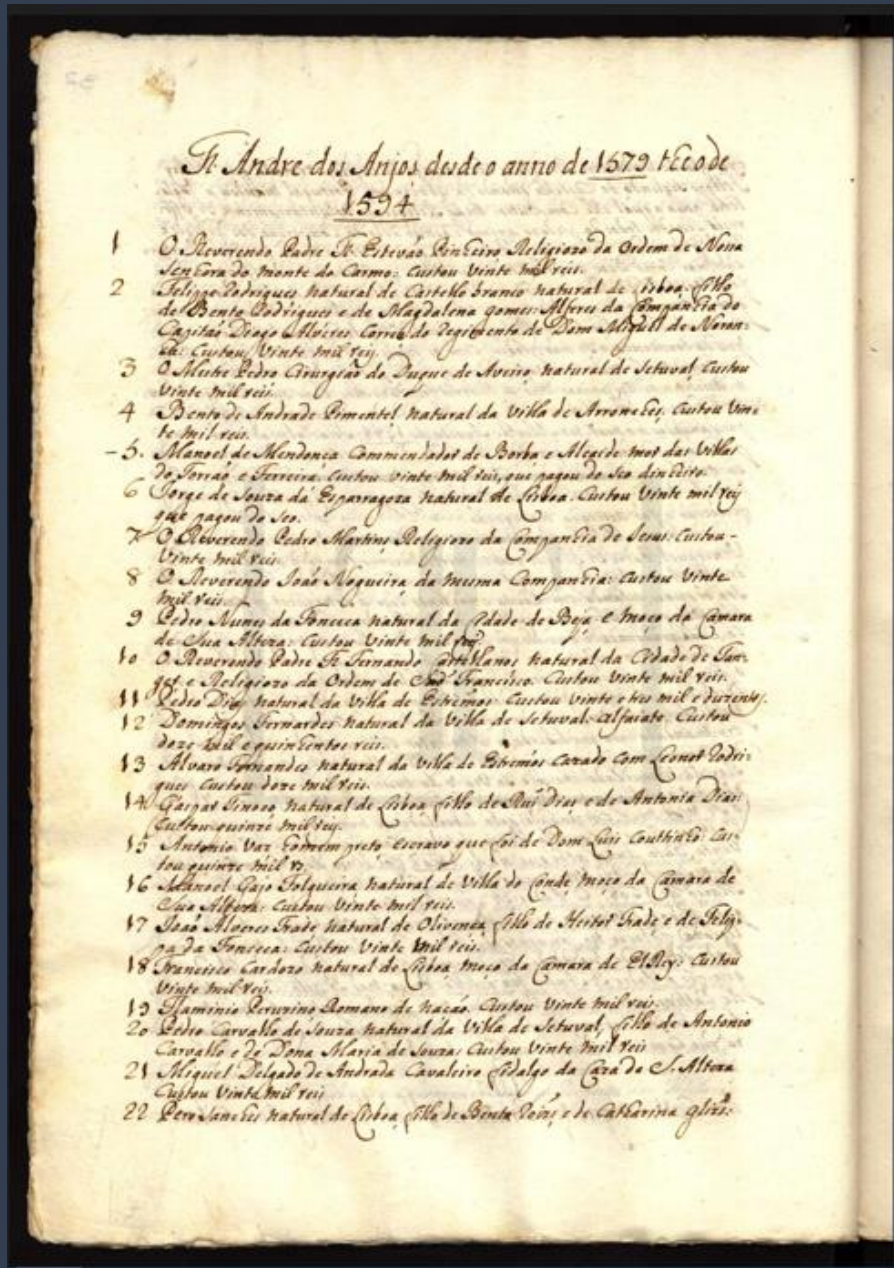 Fr. Andre dos Anjos desde o anno de 1579 thé o de
1594
1 O Reverendo Padre Fr. Estevão Pinheiro Religiozo da Ordem de Nossa
Senhora do monte do Carmo: Custou vinte mil reis.
2 Felippe Rodrigues natural de Castello branco natural de Lisboa filho
de Bento Rodrigues e de Magdalena gomes: Alferes da Companhia do
Capitão Diogo Alveres Correa do Regimento de Dom Miguel de Noron-
ha: Custou vinte mil reis.
3 O Mestre Pedro Cirurgião do Duque de Aveiro natural de Setuval Custou
vinte mil reis.
4 Bento de Andrade Pimentel natural da villa de Arronches. Custou vin-
te mil reis.
-5. Manoel de Mendonça Commendador de Borba e Alcaide mor das Villas
do Torrão e Ferreira. Custou vinte mil reis, que pagou do seo dinheiro.
6 Jorge de Souza da Esparragoza natural de Lisboa. Custou vinte mil reis
que pagou do seo.
7 O Reverendo Pedro Martins Religiozo da Companhia de Jesus: Custou-
vinte mil reis.
8 O Reverendo João Nogueira da mesma Companhia: Custou vinte
mil reis.
9 Pedro Nunes da Fonceca natural da Cidade de Beja e moço da Camara
de Sua Alteza: Custou vinte mil reis.
10 O Reverendo Padre Fr. Fernando Castellanos natural da Cidade de Tan-
ger e Religiozo da Ordem de São Francisco. Custou vinte mil reis.
11 Pedro Dias natural da Villa de Estremos: Custou vinte e tres mil e duzentos.
12 Domingos Fernandes natural da Villa de Setuval. alfaiate. Custou
doze mil e quinhentos reis.
13 Alvaro Fernandes natural da villa de Estremos cazado com Leonor Rodri-
gues Custou doze mil reis.
14 Gaspar Tinoco natural de Lisboa filho de Rui Dias e de Antonia Dias:
Custou quinze mil reis.
15 Antonio Vaz homem preto escravo que foi de Dom Luis Couttinho: Cus-
tou quinze mil rs
16 Manoel Gajo Folgueira natural de Villa do Conde moço da Camara de
Sua Alteza: Custou vinte mil reis.
17 João Alveres Frade natural de Olivença filho de Heitor Frade e de Felip-
pa da Fonceca: Custou vinte mil reis.
18 Francisco Cardozo natural de Lisboa moço da Camara de ElRey: Custou
vinte mil reis.
19 Flaminio Peruzino Romano de nacão. Custou vinte mil reis.
20 Pedro Carvalho de Souza natural da Villa de Setuval, filho de Antonio
Carvalho e de Dona Maria de Souza: Custou vinte mil reis
21 Miguel Delgado de Andrada Cavaleiro fidalgo da Caza de S. Alteza
Custou vinte mil reis
22 Pero Sanches natural de Lisboa filho de Bento e de Catharina